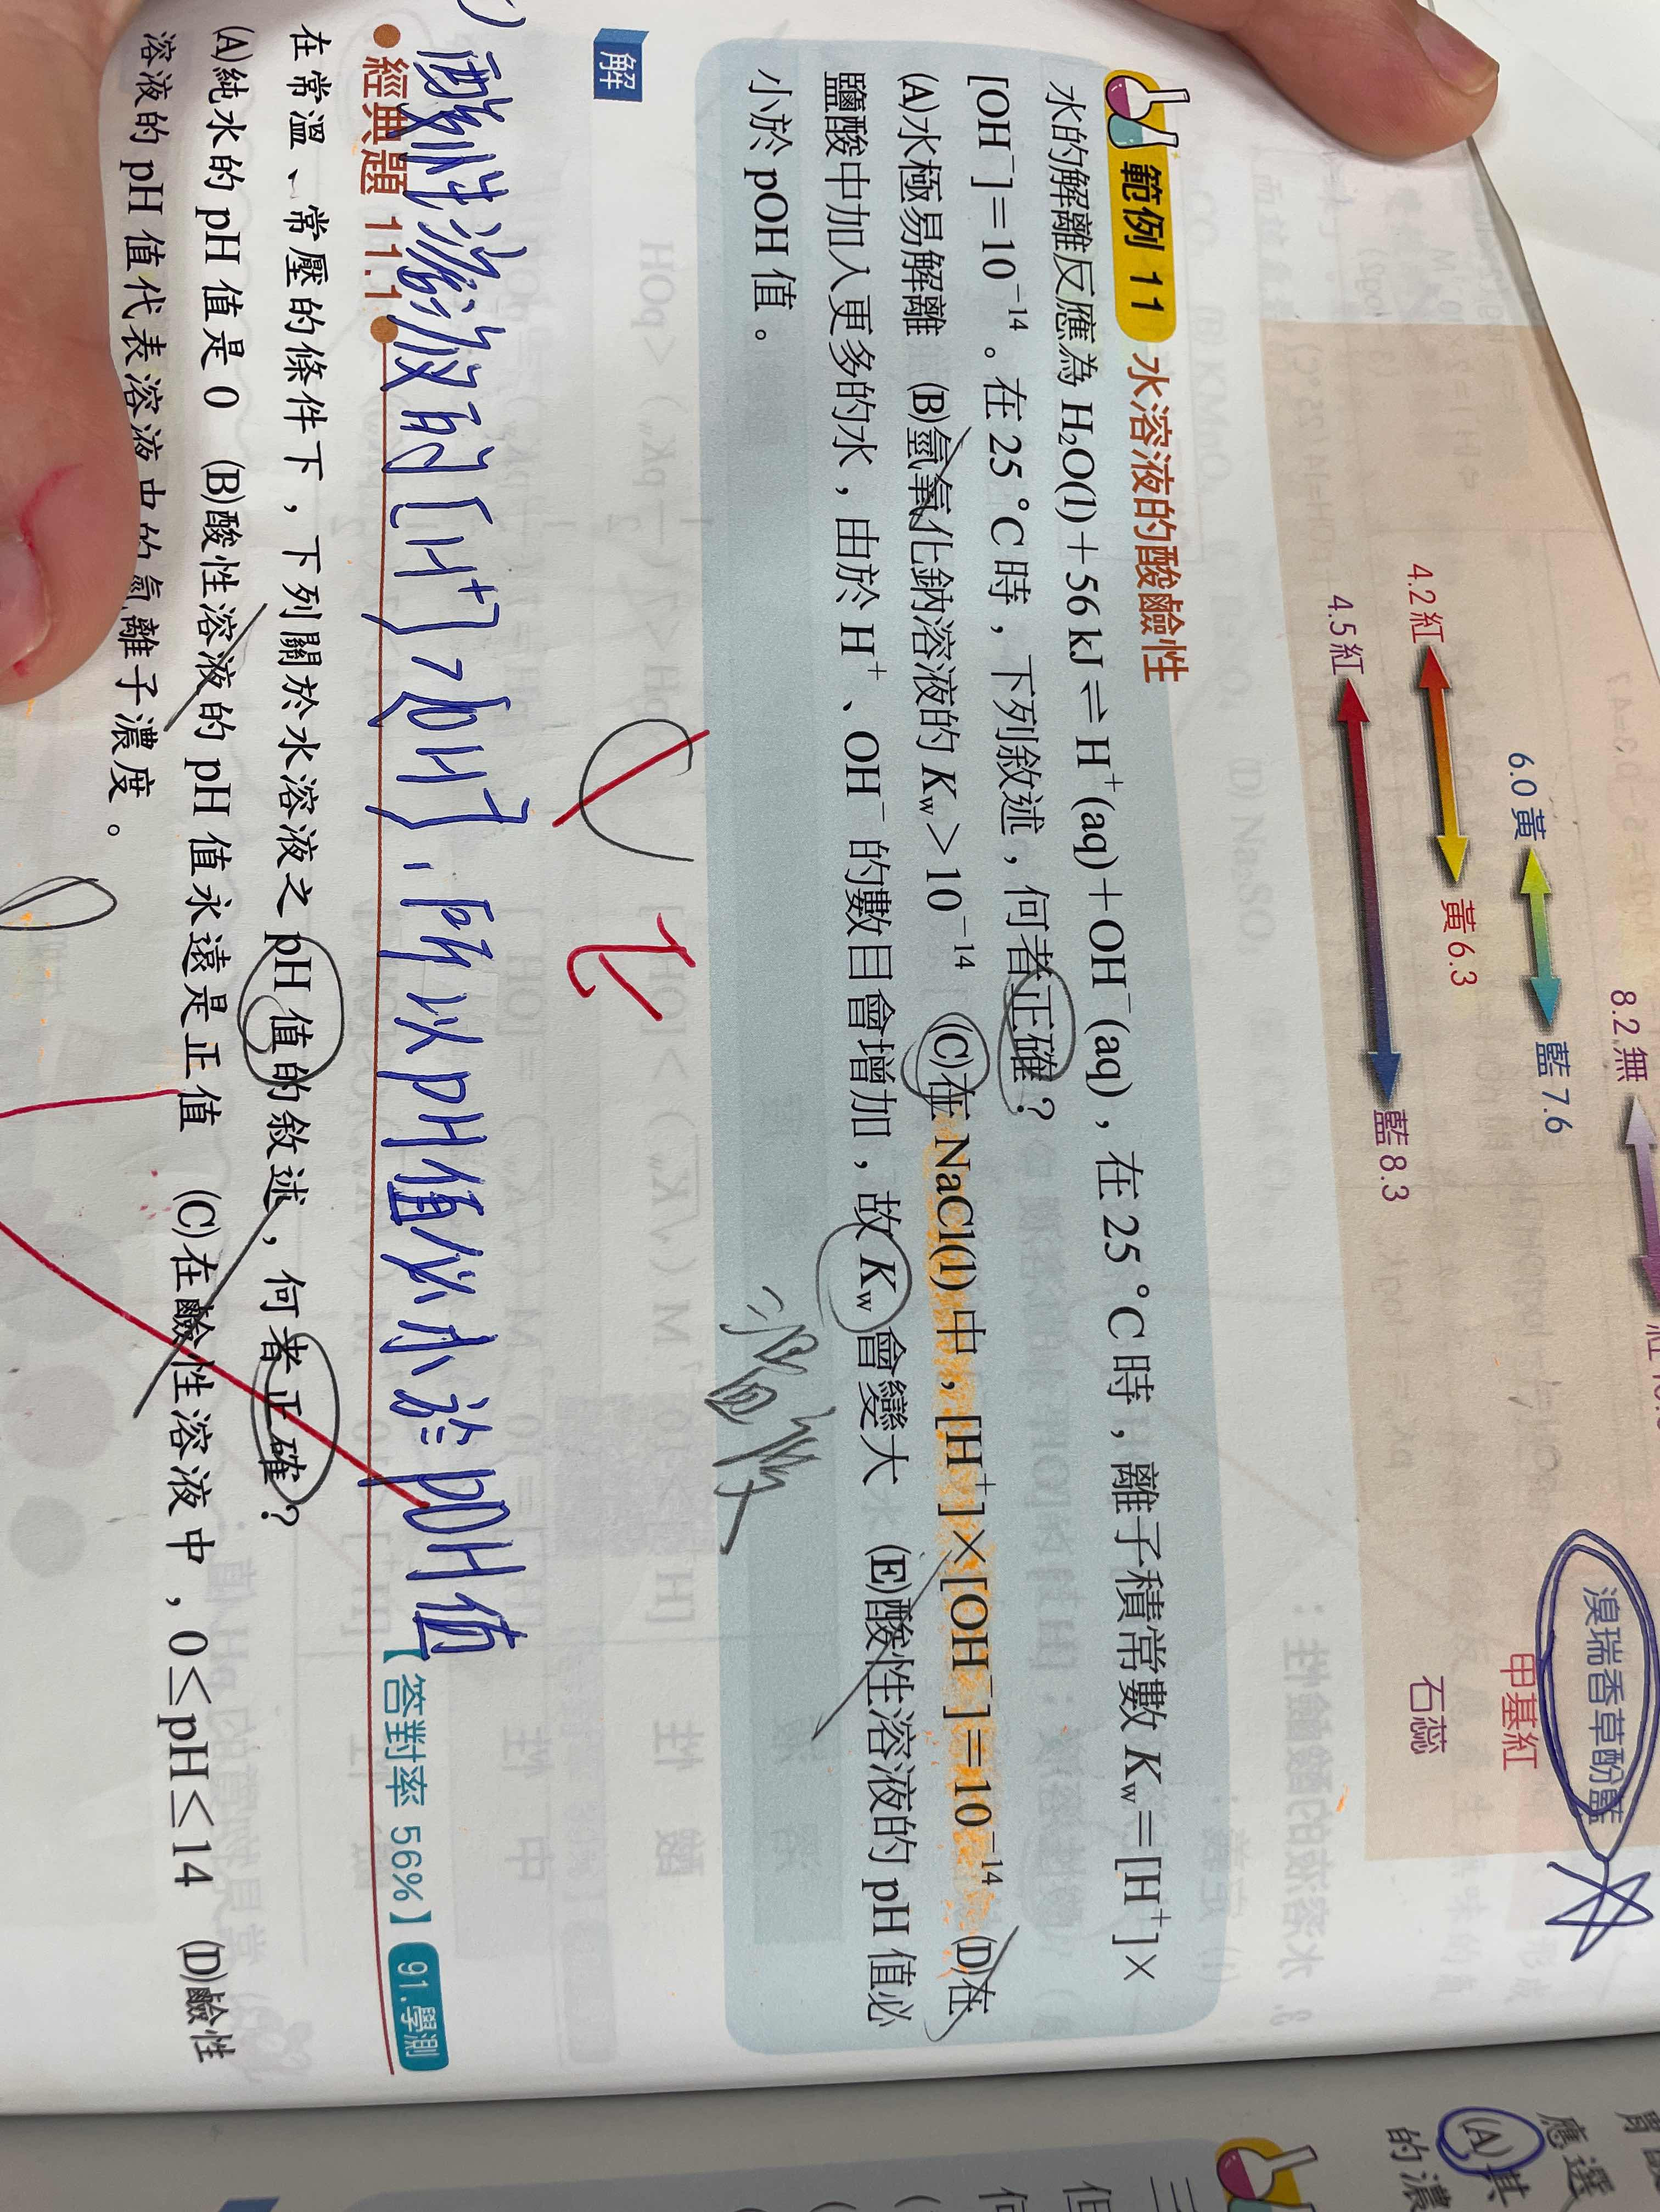 8.2 無
6.0 黃
藍 7.6
溴瑞香草酚藍
4.2 紅
黃 6.3
甲基紅
4.5 紅
藍 8.3
石蕊
範例 11 水溶液的酸鹼性
水的解離反應為 H₂O(l)＋56 kJ ⇌ H⁺(aq)＋OH⁻(aq)，在 25 °C 時，離子積常數 Kw＝[H⁺]×
[OH⁻]＝10⁻¹⁴。在 25 °C 時，下列敘述，何者正確？
(A)水極易解離 (B)氫氧化鈉溶液的 Kw＞10⁻¹⁴ (C)在 NaCl(l) 中，[H⁺]×[OH⁻]＝10⁻¹⁴ (D)在
鹽酸中加入更多的水，由於 H⁺、OH⁻ 的數目會增加，故 Kw 會變大 (E)酸性溶液的 pH 值必
小於 pOH 值。
解
酸性溶液的[H⁺]>[OH⁻]，所以pH值必小於pOH值
【答對率 56%】 91.學測
經典題 11.1
在常溫、常壓的條件下，下列關於水溶液之 pH 值的敘述，何者正確？
(A)純水的 pH 值是 0 (B)酸性溶液的 pH 值永遠是正值 (C)在鹼性溶液中，0≤pH≤14 (D)鹼性
溶液的 pH 值代表溶液中的氫離子濃度。
應選
(A)其
的濃
三
但